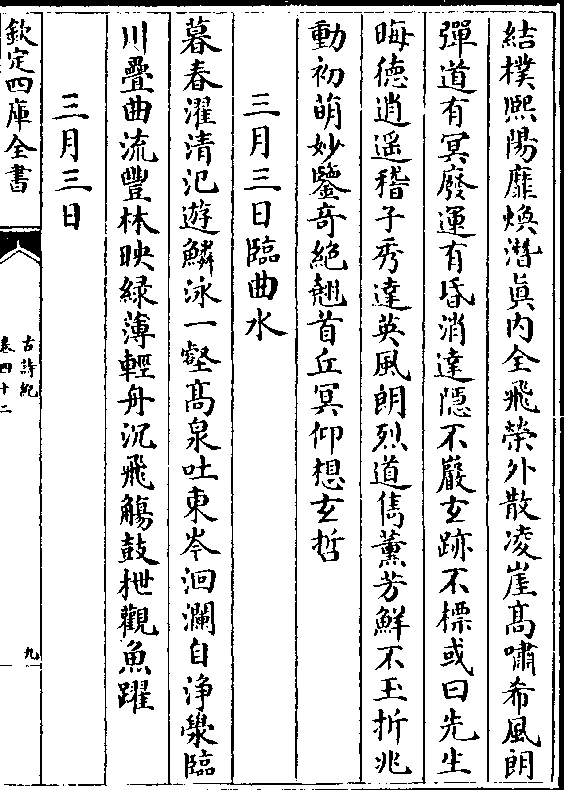 結樸熙陽靡煥潛真内全飛榮外散凌崖髙嘯希風朗
彈道有冥廢運有昏消達隱不巖玄跡不標或曰先生
晦德逍遥稽子秀達英風朗烈道儁薫芳鮮不玉折兆
動初萌妙鑒竒絶翹首丘冥仰想玄哲
三月三日臨曲水
暮春濯清汜遊鱗泳一壑髙泉吐東岑洄瀾自浄滎臨
川疊曲流豐林映緑薄輕舟沉飛觴鼓枻觀魚躍
三月三日
欽定四庫全書
古詩紀
卷四十二
九